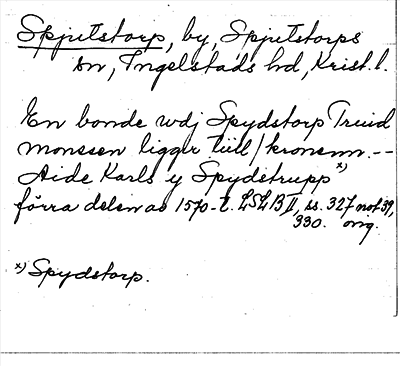 Spjutstorp, by, Spjutstorps
sn, Ingelstads hd, Krist. l.
En bonde wdj Spydstorp Truid
monssen ligger till kronenn. --
Aide Karls y Spydstrupp x)
förra delen av 1570-t. LSLB II, ss. 327 not 39,
330. orig.
x) Spydstorp.